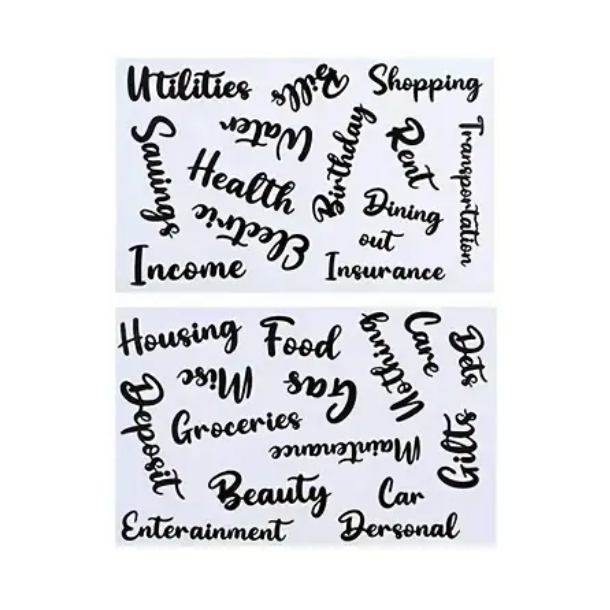 Utilities
Bills
Shopping
Savings
Water
Birthday
Rent
Transportation
Health
Electric
Dining
out
Income
Insurance
Housing
Food
Nothing
Care
Dets
Misc
Gas
Deposit
Groceries
Maintenance
Gifts
Beauty
Car
Enterainment
Dersonal